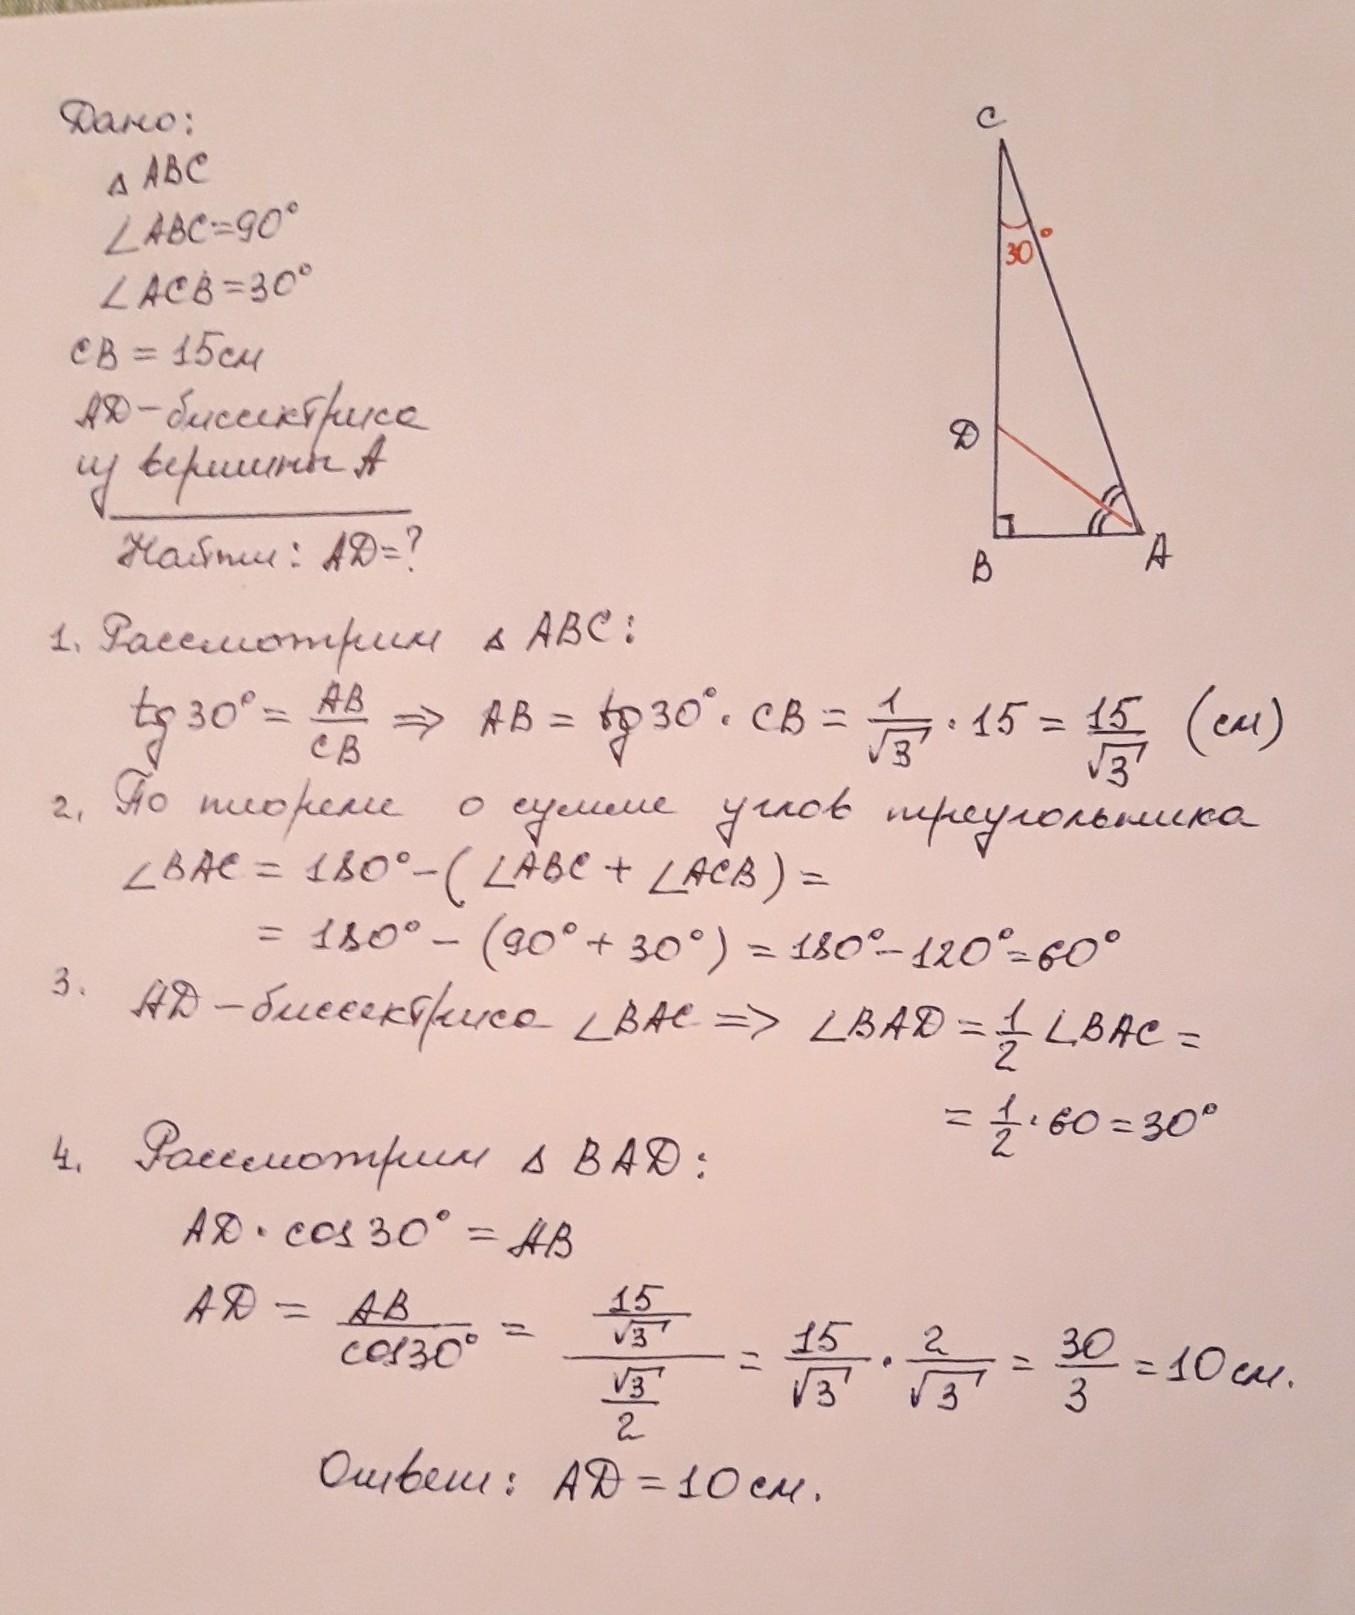 Дано:
△ ABC
∠ABC=90°
∠ACB=30°
CB = 15см
AD-биссектриса
из вершины A
Найти: AD=?
C
30°
D
B
A
1. Рассмотрим △ ABC:
tg30° = AB/CB => AB = tg30° · CB = 1/√3 · 15 = 15/√3 (см)
2. По теореме о сумме углов треугольника
∠BAC = 180° - (∠ABC + ∠ACB) =
= 180° - (90° + 30°) = 180° - 120° = 60°
3. AD - биссектриса ∠BAC => ∠BAD = 1/2 ∠BAC =
= 1/2 · 60 = 30°
4. Рассмотрим △ BAD:
AD · cos30° = AB
AD = AB/cos30° = (15/√3)/(√3/2) = 15/√3 · 2/√3 = 30/3 = 10см.
Ответ: AD = 10см.